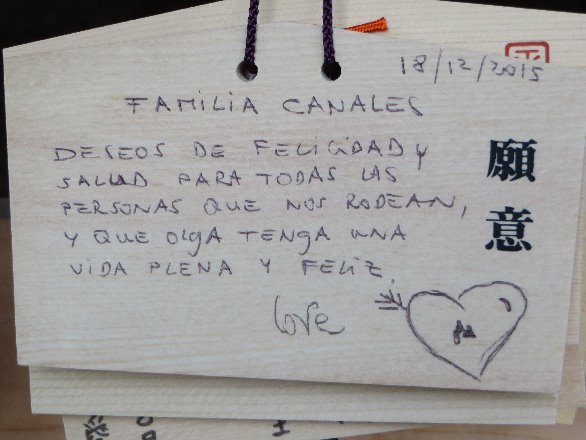 18/12/2015
FAMILIA CANALES
DESEOS DE FELICIDAD y
SALUD PARA TODAS LAS
PERSONAS QUE NOS RODEAN,
Y QUE OLGA TENGA UNA
VIDA PLENA Y FELIZ.
love
願意